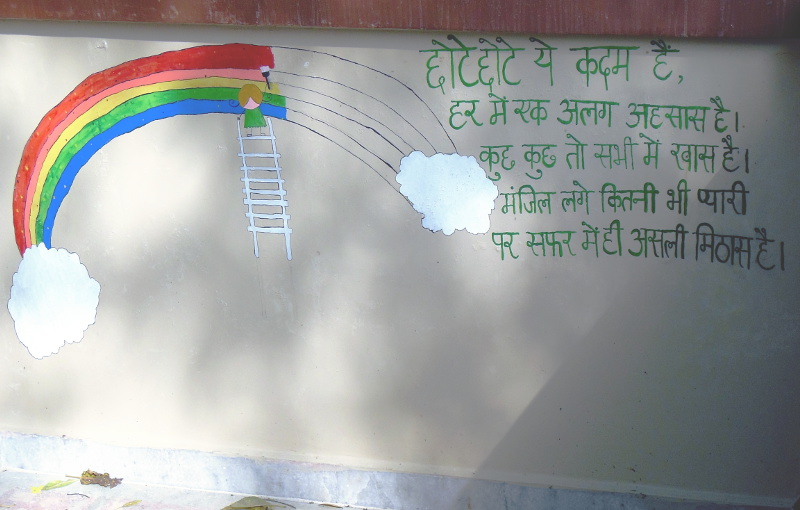 छोटे छोटे ये कदम हैं,
हर में एक अलग अहसास है।
कुछ कुछ तो सभी में खास है।
मंजिल लगे कितनी भी प्यारी
पर सफर में ही असली मिठास है।